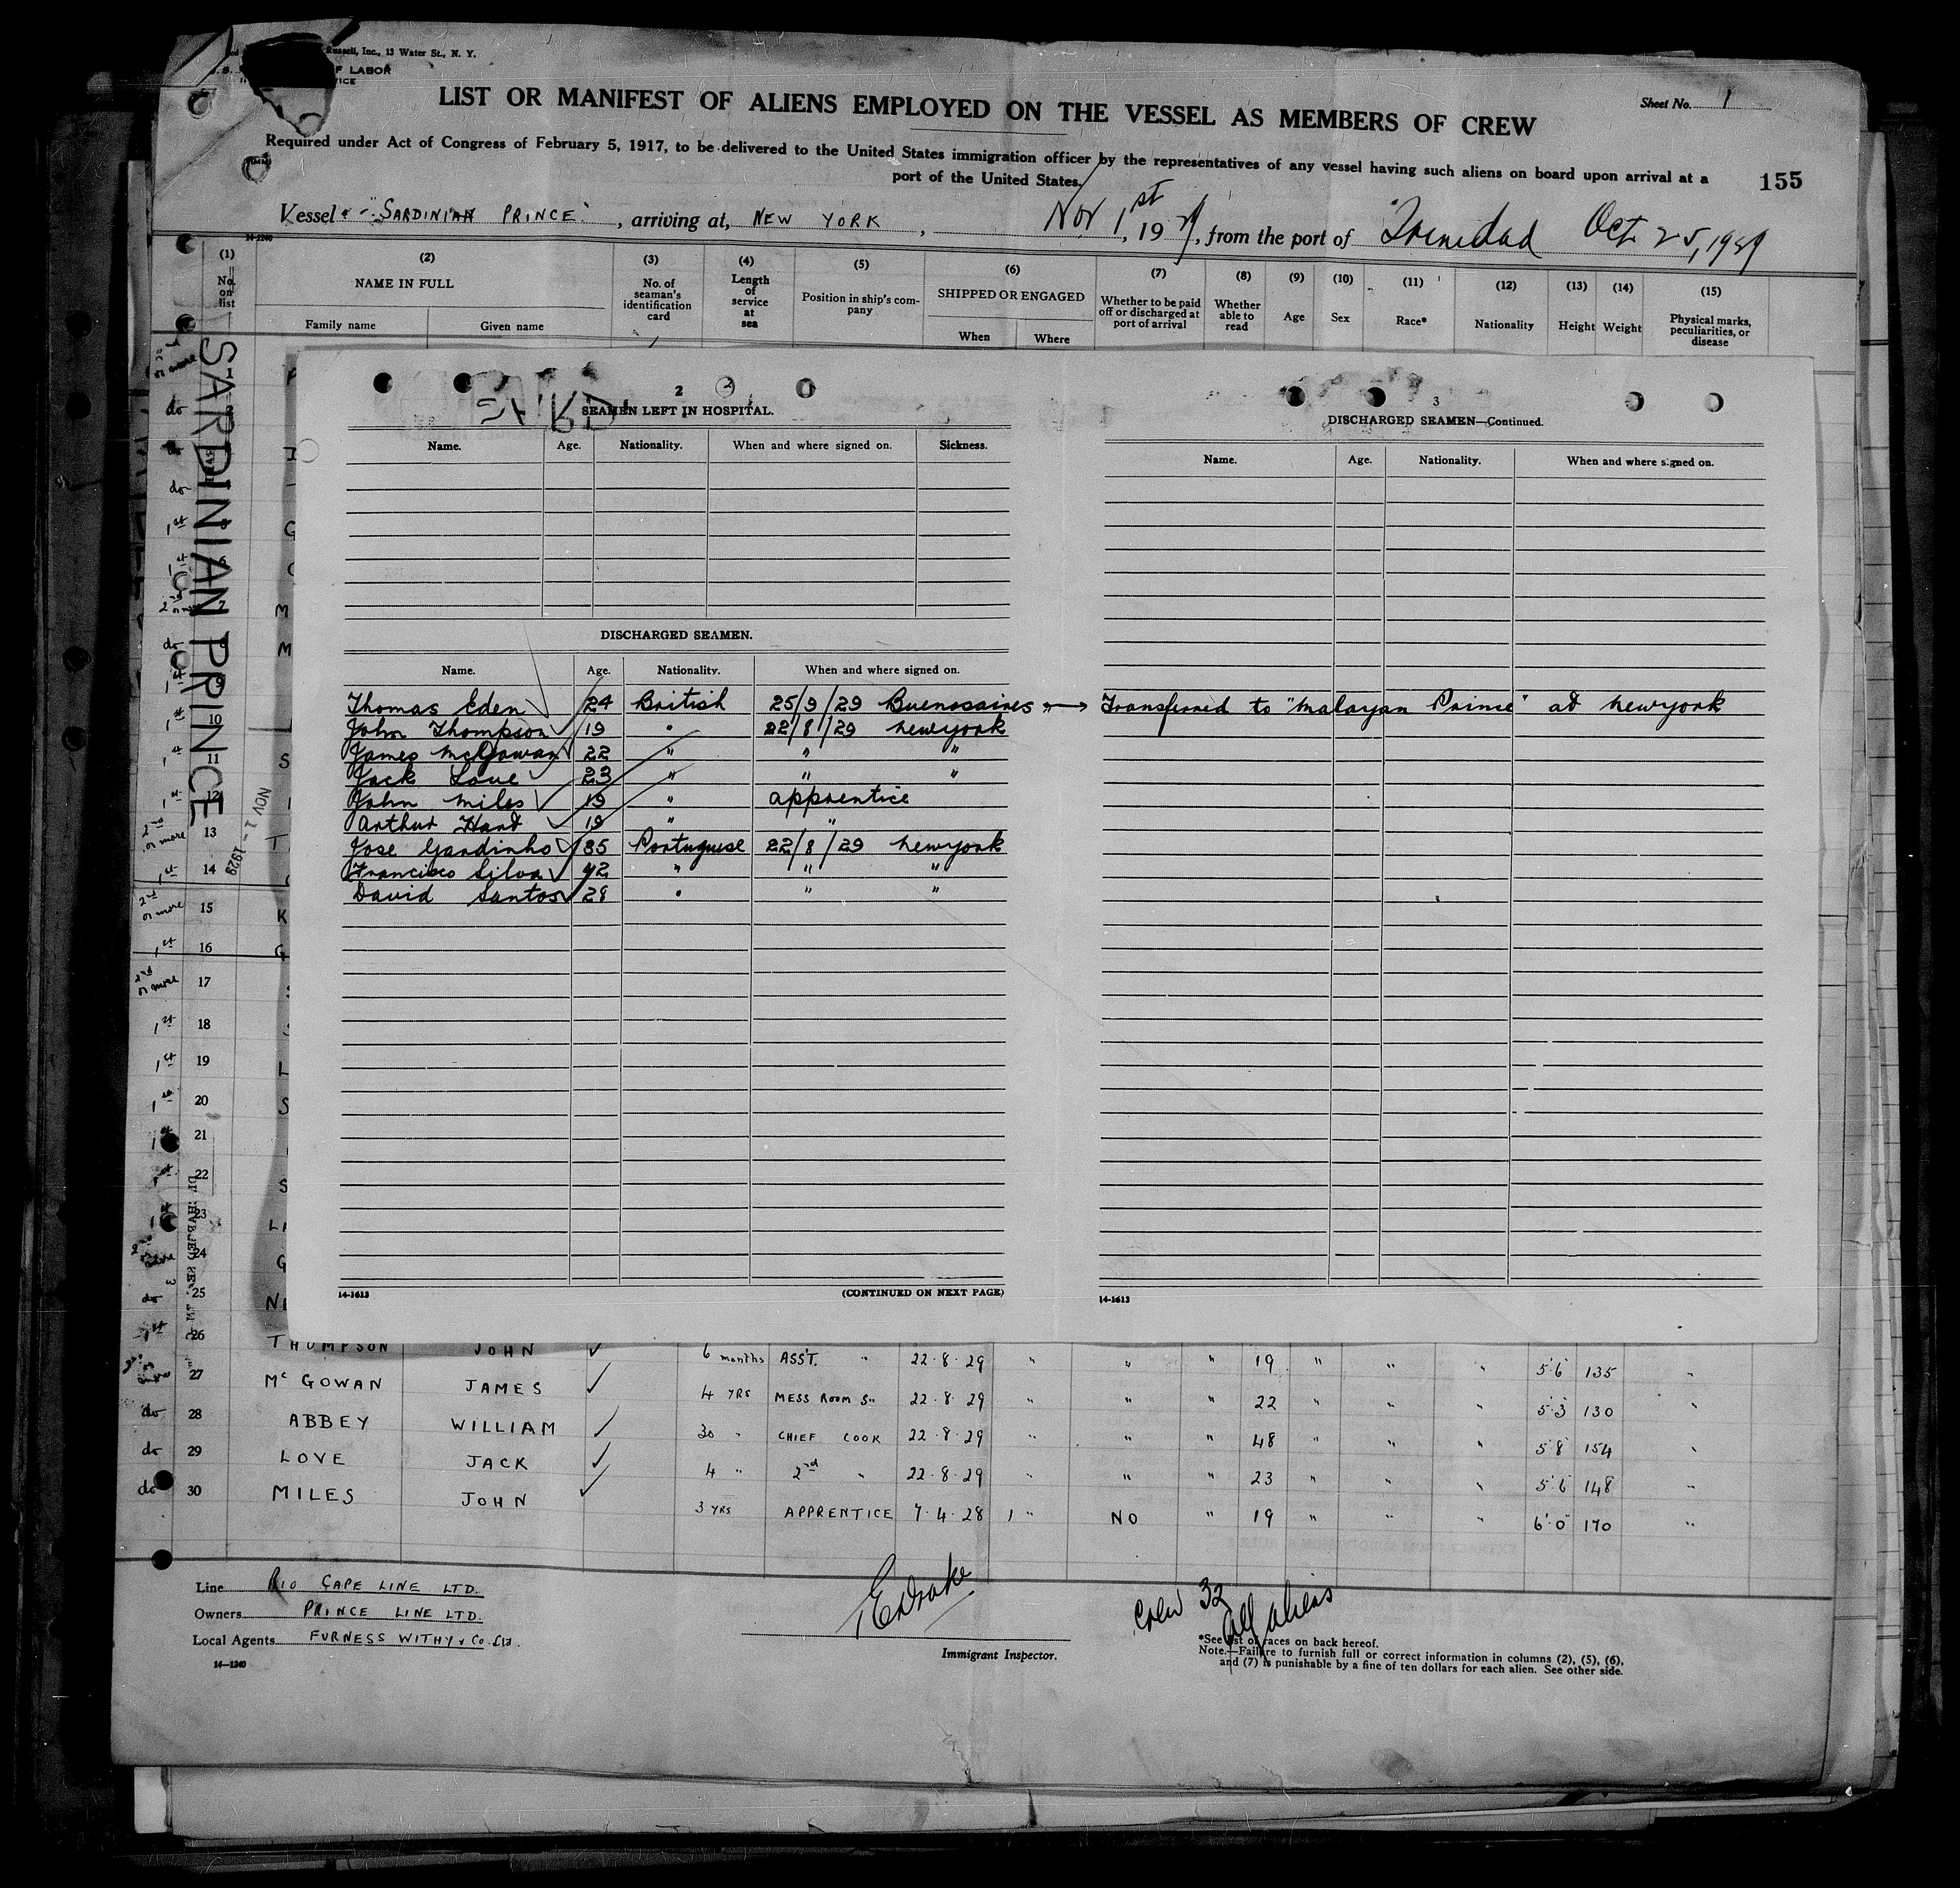 Russell, Inc., 13 Water St., N. Y.
F LABOR
LIST OR MANIFEST OF ALIENS EMPLOYED ON THE VESSEL AS MEMBERS OF CREW
Sheet No. 1
Required under Act of Congress of February 5, 1917, to be delivered to the United States immigration officer by the representatives of any vessel having such aliens on board upon arrival at a
port of the United States.
155
Vessel "SARDINIAN PRINCE", arriving at, NEW YORK, Nov 1st, 1929, from the port of Trinidad Oct 25, 1929
14-1240
(1) (2) (3) (4) (5) (6) (7) (8) (9) (10) (11) (12) (13) (14) (15)
No. on list NAME IN FULL Family name Given name No. of seaman's identification card Length of service at sea Position in ship's company SHIPPED OR ENGAGED When Where Whether to be paid off or discharged at port of arrival Whether able to read Age Sex Race* Nationality Height Weight Physical marks, peculiarities, or disease
SARDINIAN PRINCE
NOV 1 - 1929
2
SEAMEN LEFT IN HOSPITAL.
Name. Age. Nationality. When and where signed on. Sickness.
DISCHARGED SEAMEN.
Name. Age. Nationality. When and where signed on.
Thomas Eden 24 British 25/9/29 Buenosaires
John Thompson 19 " 22/8/29 newyork
James McGowan 22 " " "
Jack Love 23 " " "
John Miles 19 " apprentice
Arthur Hand 19 " "
Jose Gandinho 35 Portuguese 22/8/29 newyork
Francisco Silva 42 " " "
David Santos 28 " " "
14-1613
(CONTINUED ON NEXT PAGE)
3
DISCHARGED SEAMEN—Continued.
Name. Age. Nationality. When and where signed on.
Transferred to "Malayan Prince" at newyork
14-1613
7
9
10
11
12
13
14
15
16
17
18
19
20
21
22
23
24
25
26 THOMPSON JOHN 6 months ASST. " 22.8.29 " " " 19 " " " 5'6 135 "
27 McGOWAN JAMES 4 YRS MESS ROOM S" 22.8.29 " " " 22 " " " 5'3 130 "
28 ABBEY WILLIAM 30 " CHIEF COOK 22.8.29 " " " 48 " " " 5'8 154 "
29 LOVE JACK 4 " 2nd " 22.8.29 " " " 23 " " " 5'6 148 "
30 MILES JOHN 3 YRS APPRENTICE 7.4.28 1 " NO " 19 " " " 6'0 170 "
Line RIO CAPE LINE LTD.
Owners PRINCE LINE LTD.
Local Agents FURNESS WITHY & Co. Ltd.
14—1240
Immigrant Inspector.
Crew 32
all aliens
*See list of races on back hereof.
Note.—Failure to furnish full or correct information in columns (2), (5), (6),
and (7) is punishable by a fine of ten dollars for each alien. See other side.